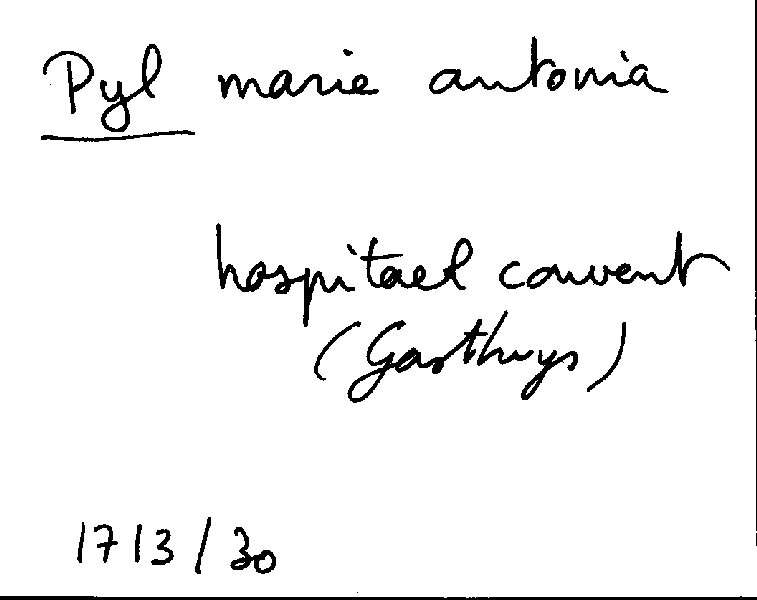 Pyl marie antonia
hospitael convent
(Gasthuys)
1713/30